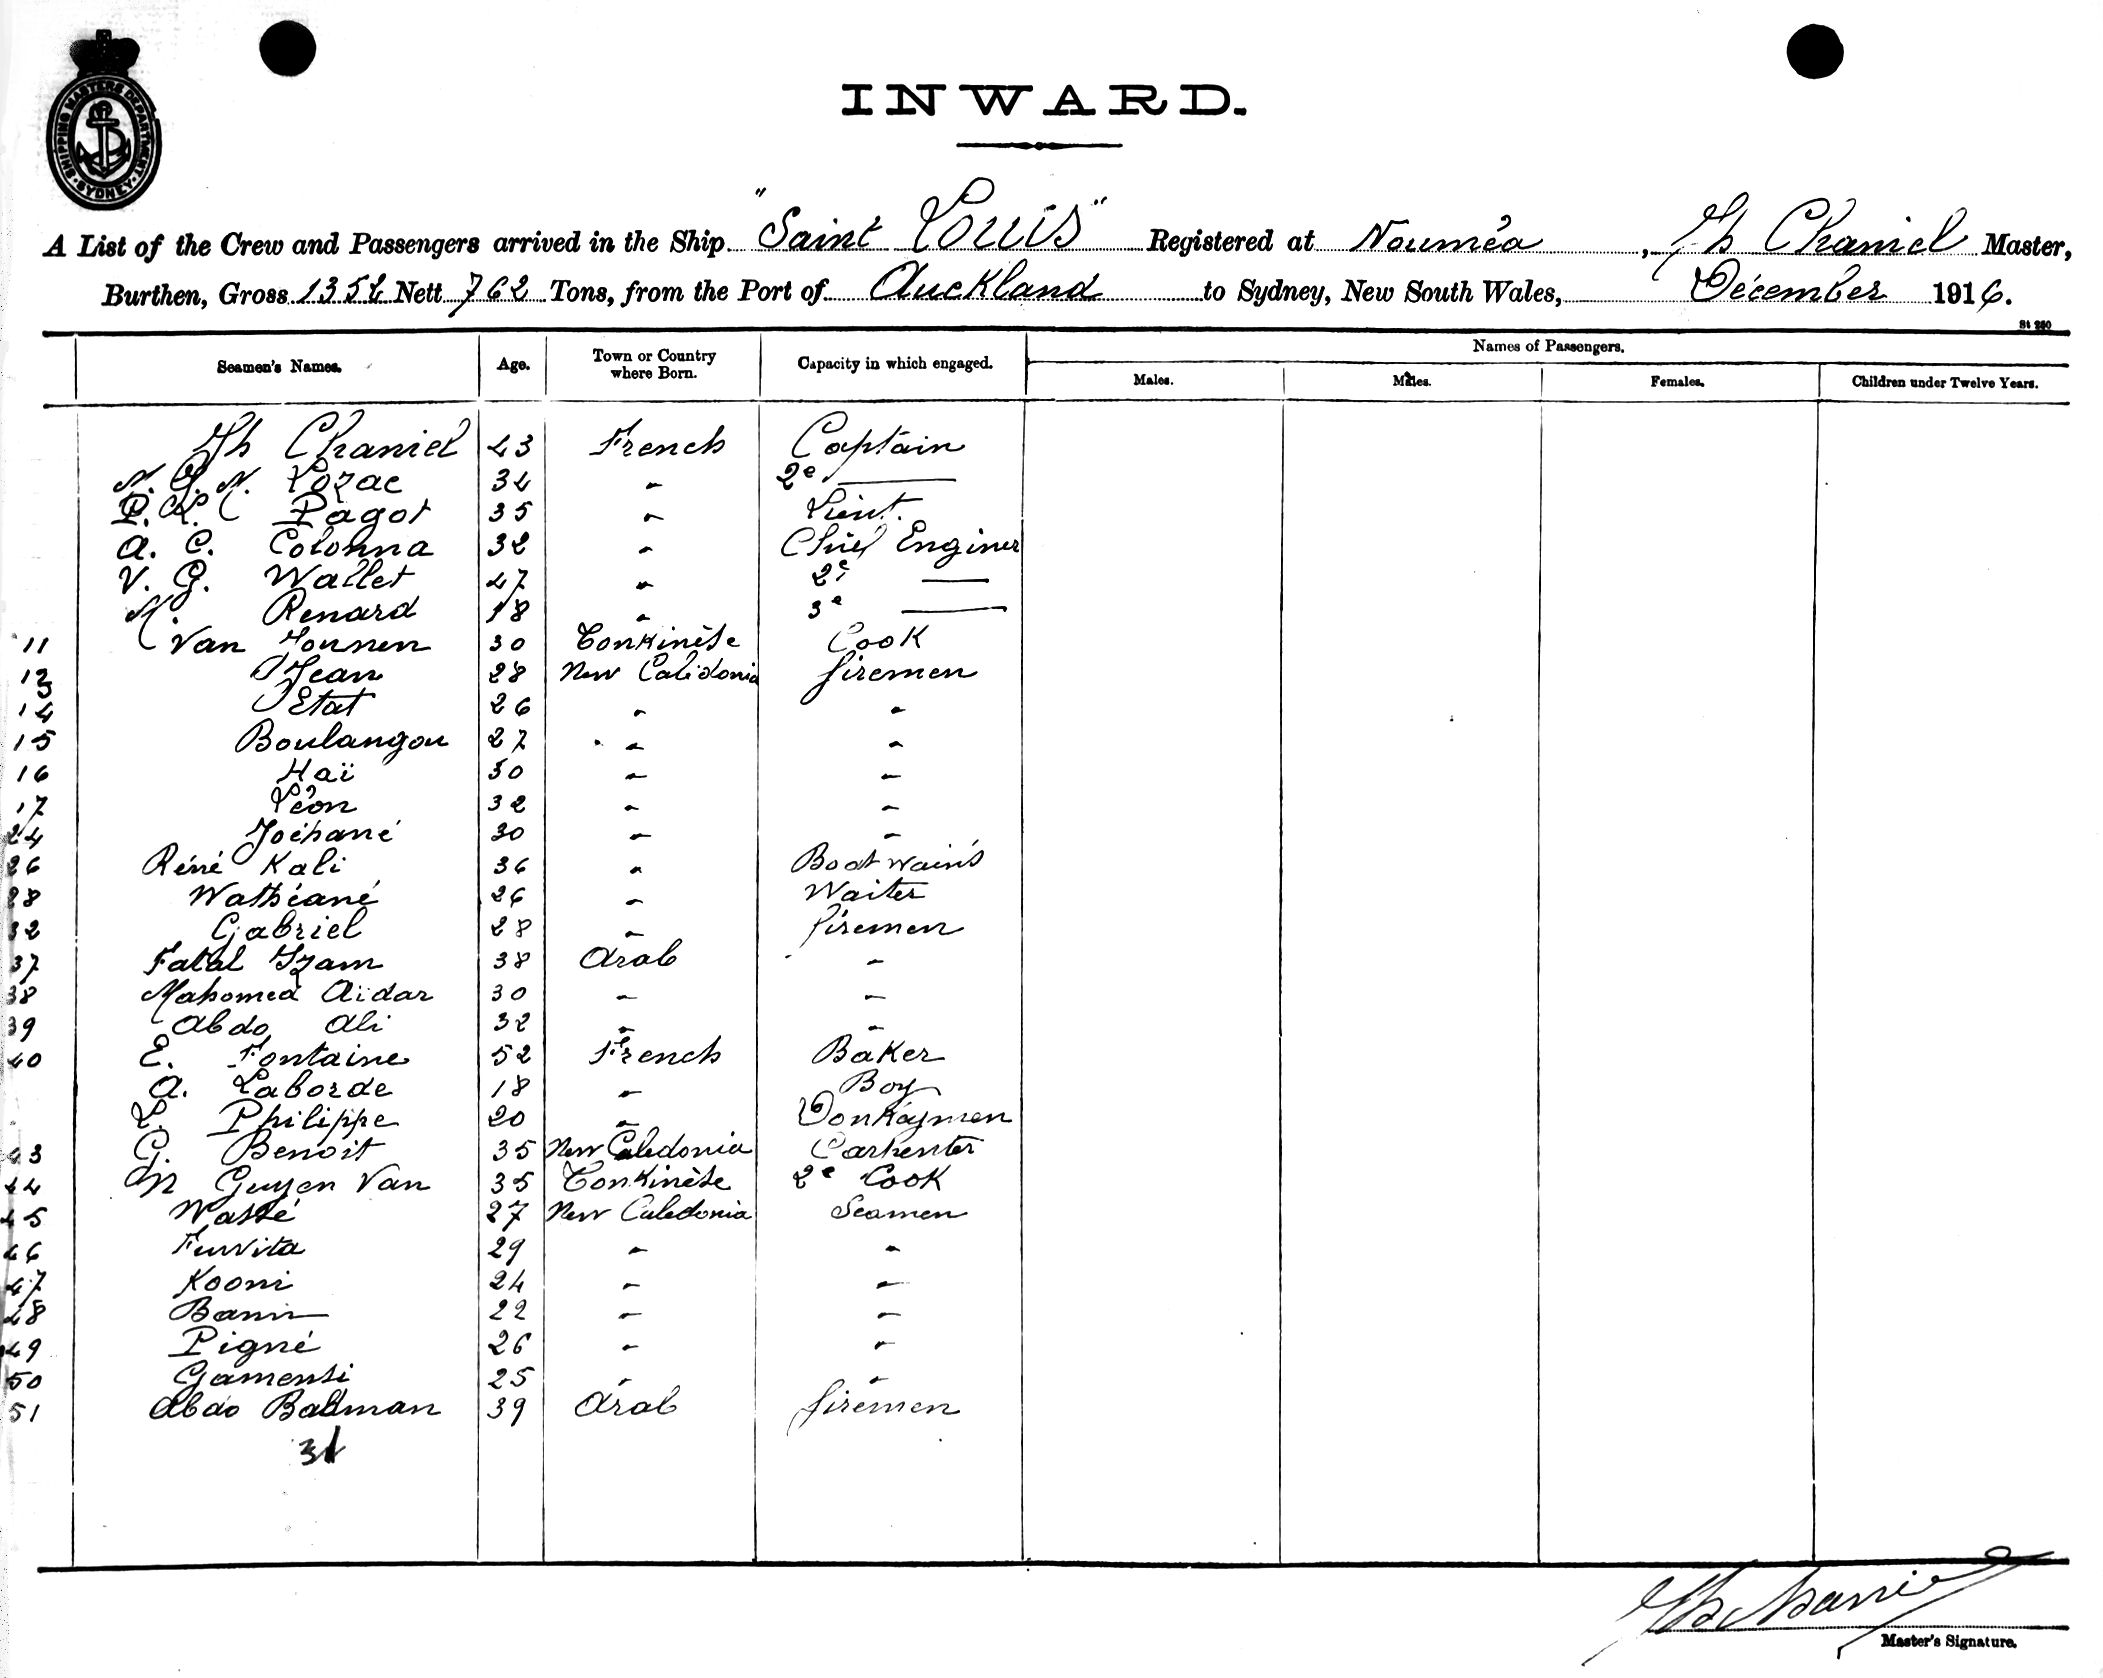 SHIPPING MASTERS DEPARTMENT · SYDNEY ·
INWARD.
A List of the Crew and Passengers arrived in the Ship "Saint Louis" Registered at Nouméa, Th Chaniel Master,
Burthen, Gross 1354 Nett 762 Tons, from the Port of Auckland to Sydney, New South Wales, Décember 1916.
St 280
Seamen's Names. Age. Town or Country where Born. Capacity in which engaged. Names of Passengers.
Males. Males. Females. Children under Twelve Years.
Th Chaniel 43 French Captain
N. G. N. Lozac 34 " 2e ——
P. L. Pagot 35 " Lieut.
A. C. Colonna 32 " Chief Enginer
V. G. Wallet 47 " 2e ——
M. Renard 18 " 3e ——
11 Van Tounen 30 Tonkinèse Cook
12 Jean 28 New Calédonia firemen
13
14 Etat 26 " "
15 Boulangou 27 " "
16 Haï 30 " "
17 Léon 32 " "
24 Joéhané 30 " "
26 Réné Kali 36 " Boat wain's
28 Wathéané 26 " Waiter
32 Gabriel 28 " firemen
37 Fatal Izam 38 Arab "
38 Mahomed Aïdar 30 " "
39 Abdo Ali 32 " "
40 E. Fontaine 52 French Baker
A. Laborde 18 " Boy
L. Philippe 20 " Donkaymen
43 G. Benoit 35 New Caledonia Carpenter
44 N Guyen Van 35 Tonkinèse 2e Cook
45 Wassé 27 New Caledonia Seamen
46 Furvita 29 " "
47 Kooni 24 " "
48 Banir 22 " "
49 Pigné 26 " "
50 Gamensi 25 " "
51 Abdo Badman 39 Arab firemen
31
Th Chaniel
Master's Signature.